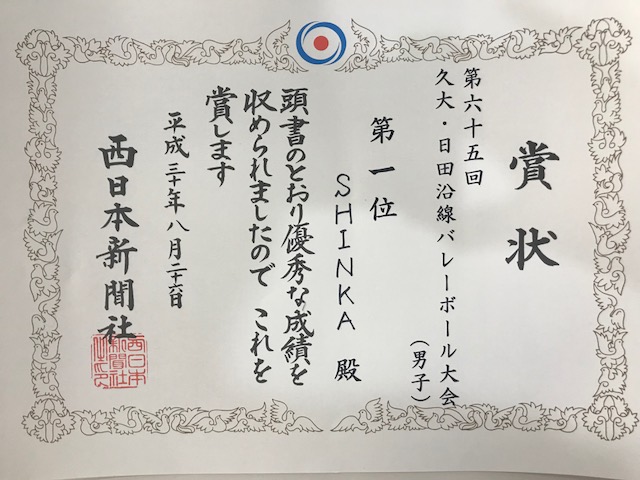 賞状
第六十五回
久大・日田沿線バレーボール大会
(男子)
第一位
SHINKA 殿
頭書のとおり優秀な成績を
収められましたので これを
賞します
平成三十年八月二十六日
西日本新聞社
西日本
新聞社